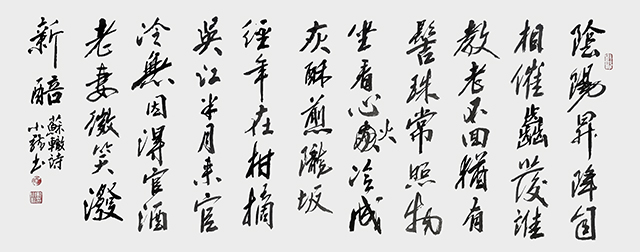 陰陽昇降自
相催齒髮誰
教老不回猶有
髻珠常照物
坐看心火冷成
灰酥煎隴坂
經年在柑摘
吳江半月來官
冷無因得官酒
老妻微笑潑
新醅
蘇轍詩
小書